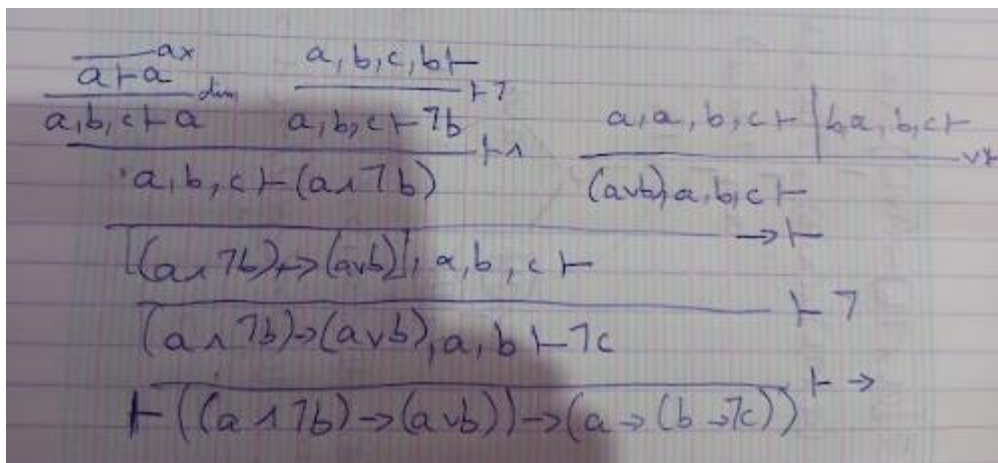 ax
a ⊢ a dim a, b, c, b ⊢ ⊢ ¬
a, b, c ⊢ a a, b, c ⊢ ¬b ⊢ ∧ a, a, b, c ⊢ | b, a, b, c ⊢ ∨ ⊢
a, b, c ⊢ (a ∧ ¬b) (a∨b), a, b, c ⊢
→ ⊢
[(a ∧ ¬b) → (a∨b)], a, b, c ⊢
⊢ ¬
(a ∧ ¬b) → (a∨b), a, b ⊢ ¬c
⊢ →
⊢ ((a ∧ ¬b) → (a∨b)) → (a → (b → ¬c))